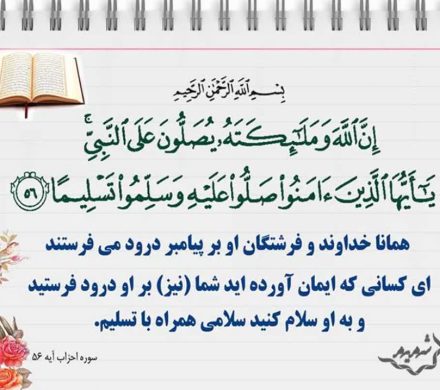 بِسْمِ اللَّهِ الرَّحْمَٰنِ الرَّحِيمِ
إِنَّ اللَّهَ وَمَلَـٰٓئِكَتَهُۥ يُصَلُّونَ عَلَى النَّبِيِّ ۚ
يَـٰٓأَيُّهَا الَّذِينَ ءَامَنُوا۟ صَلُّوا۟ عَلَيْهِ وَسَلِّمُوا۟ تَسْلِيمًا ﴿٥٦﴾
همانا خداوند و فرشتگان او بر پیامبر درود می فرستند
ای کسانی که ایمان آورده اید شما (نیز) بر او درود فرستید
و به او سلام کنید سلامی همراه با تسلیم.
سوره احزاب آیه ۵۶